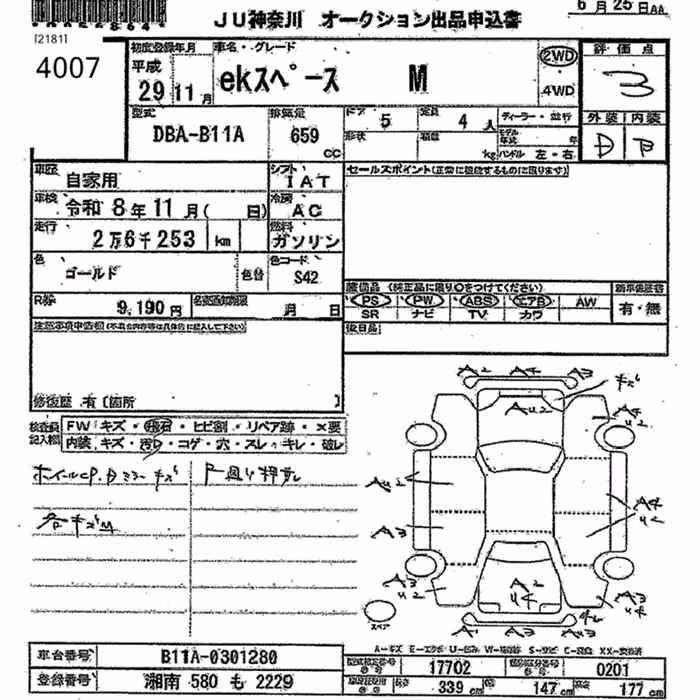 6月25日AA
[2181]
JU神奈川 オークション出品申込書
4007
初度登録年月 車名・グレード
平成 29 11月 ekスペース M
2WD
4WD
評価点
3
外装 内装
D B
型式 排気量 ドア 定員 ディーラー・並行
DBA-B11A 659 cc 5 4人
形状 積載 kg モデル年式 年
ハンドル 左・右
車歴 自家用 シフト IAT
セールスポイント(正常に機能するものに限ります)
車検 令和 8年 11月( 日) 冷房 AC
走行 2万6千253 km 燃料 ガソリン
色 ゴールド 色替 色コード S42
装備品(純正品に限り○をつけてください) 新車保証書
PS PW ABS エアB AW 有・無
SR ナビ TV カワ
R券 9,190円 名変通知期限 月 日
後日品
注意事項申告欄
修復歴 有〔箇所 〕
検査員記入欄 FW キズ・飛石・ヒビ割・リペア跡・×要
内装 キズ・汚れ・コゲ・穴・スレ・キレ・破レ
ホイールCP.Dミラーキズ
下廻り押有
各キズM
A2 A4 A3
キズ
AU2
A4
U2
AU2
A3
A4
U2
A3
U2
A2
U4
A3
A1 A3
スペア
A-キズ E-エクボ U-凹み W-補修跡 S-サビ C-腐食 XX-交換済
車台番号 B11A-0301280
型式指定番号 17702 類別区分番号 0201
登録番号 湘南 580 も 2229
長さ 339 cm 幅 147 cm 高さ 177 cm